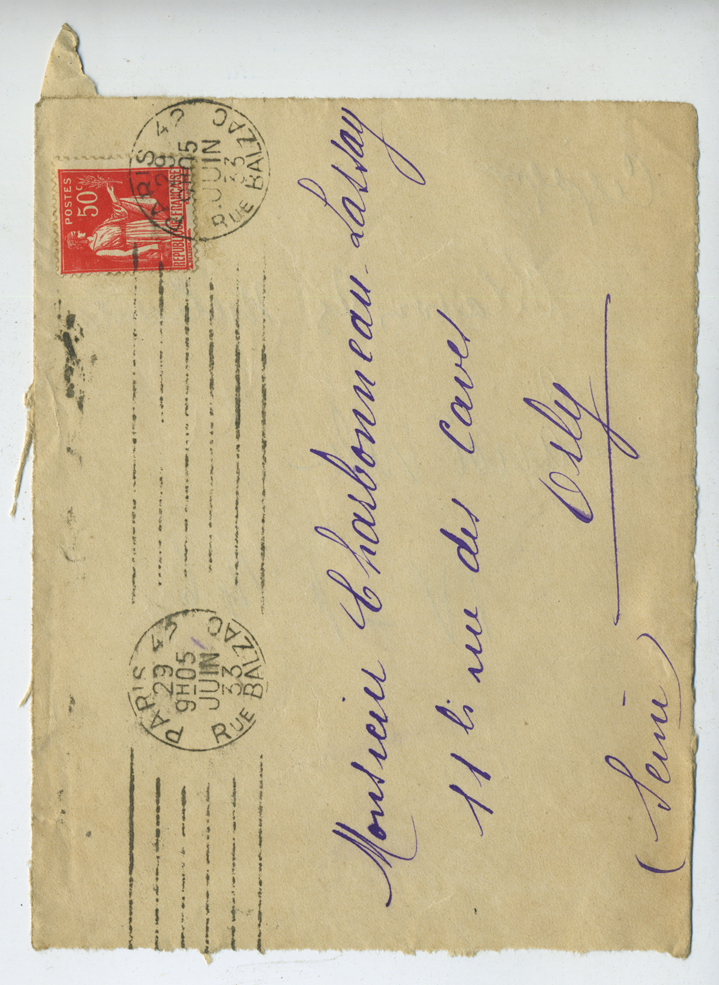 POSTES
50c
REPUBLIQUE FRANCAISE
PARIS 43
29
9H05
JUIN
33
RUE BALZAC
PARIS 43
29
9H05
JUIN
33
RUE BALZAC
Monsieur Charbonneau-Lassay
11 bis rue des Caves
Orly
(Seine)